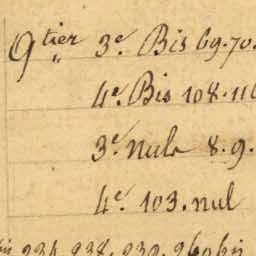 Qtier 3e. Bis 69.70.
4e. Bis 108.110
3e. nule 8.9.
4e. 103. nul
234. 238. 239. 240 bis